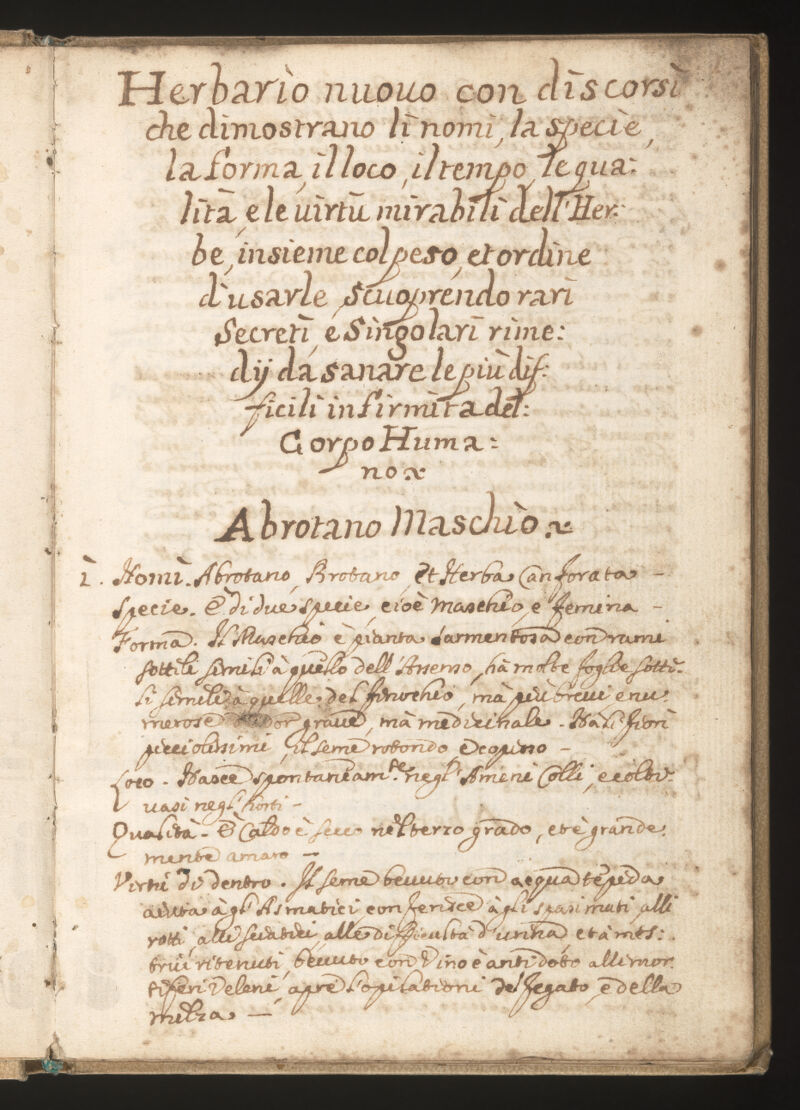 Herbario nuouo con discorsi
che dimostrano li nomi, la specie,
la forma, il loco, il tempo, le qua:
lità, e le uirtù mirabili dell'Her:
be, insieme col peso, et ordine
d'usarle, scuoprendo rari
Secreti, e Singolari rime:
dij da sanare le più dif:
ficili infirmità del:
Corpo Huma:
no
Abrotano Maschio.
1. Nomi. Abrotano, Brotano, et Herba Canforata –
Specie. È di due specie, cioè Maschio, e femina –
Forma. Il Maschio è pianta sarmentosa con rami
sottili simili à quello dell'Assenso, hà molte foglie sotti:
li simili à quelle del finochio, mà più breui e nu:
merose d'odor graue, mà medicinale. Hà li fiori
picciolissimi, il seme rotondo e copioso –
Loco. Nasce spontaneam.te negl'Ameni Colli, e colti:
uasi negl'horti –
Qualità. È Caldo è secco nel terzo grado, et è grande:
mente amaro –
Virtù di dentro. Il seme beuuto con acqua tepida
aiuta à gl'Asmatici conferisce à gli spasimati, alli
rotti, alli sciatici, alle difficultà d'urina, et à mes:
trui ritenuti, beuuto con Vino è antidoto alli mor
tiferi Veleni, apre l'opilationi del fegato, e della
milza –